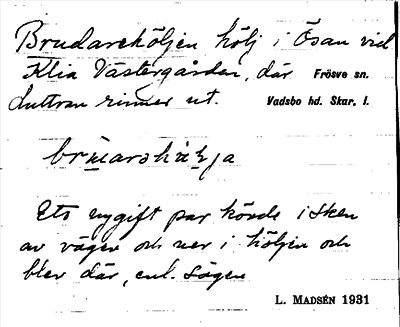 Brudareköljen hölj i Ösan vid
Klia Västergården, där Frösve sn.
luttran rinner ut. Vadsbo hd. Skar. l.
Ett nygift par körde i sken
av vägen och ner i höljen och
blev där, enl. sägen
L. MADSÉN 1931